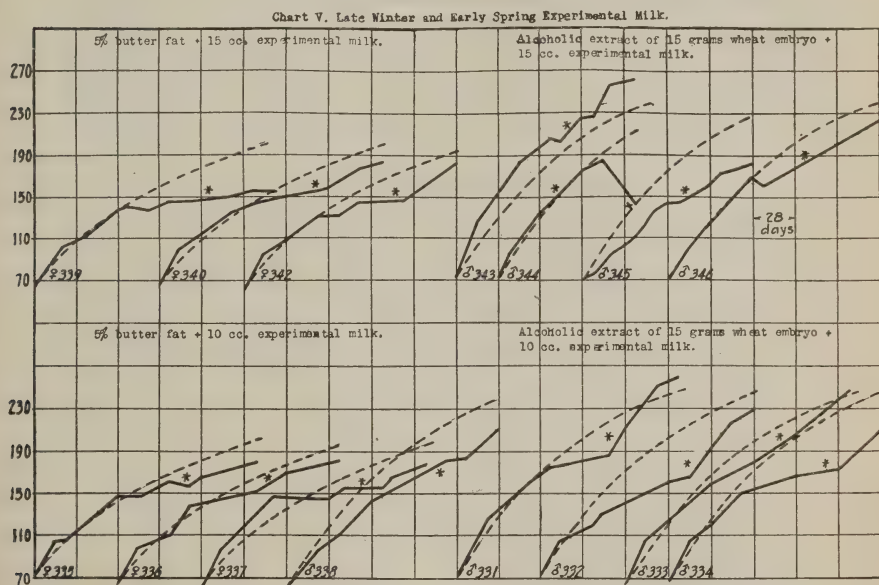 Chart V. Late Winter and Early Spring Experimental Milk.
5% butter fat + 15 cc. experimental milk.
Alcoholic extract of 15 grams wheat embryo +
15 cc. experimental milk.
270
230
190
150
110
70
*
*
*
*
*
*
*
*
- 28 -
days
♀339
♀340
♀342
♂343
♂344
♂345
♂346
5% butter fat + 10 cc. experimental milk.
Alcoholic extract of 15 grams wheat embryo +
10 cc. experimental milk.
230
190
150
110
70
*
*
*
*
*
*
*
*
♀335
♀336
♀337
♂338
♂331
♂332
♂333
♂334